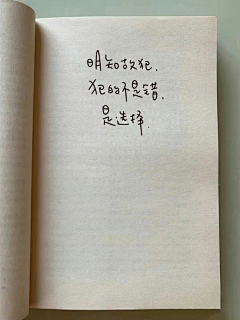 明知故犯.
犯的不是错.
是选择.